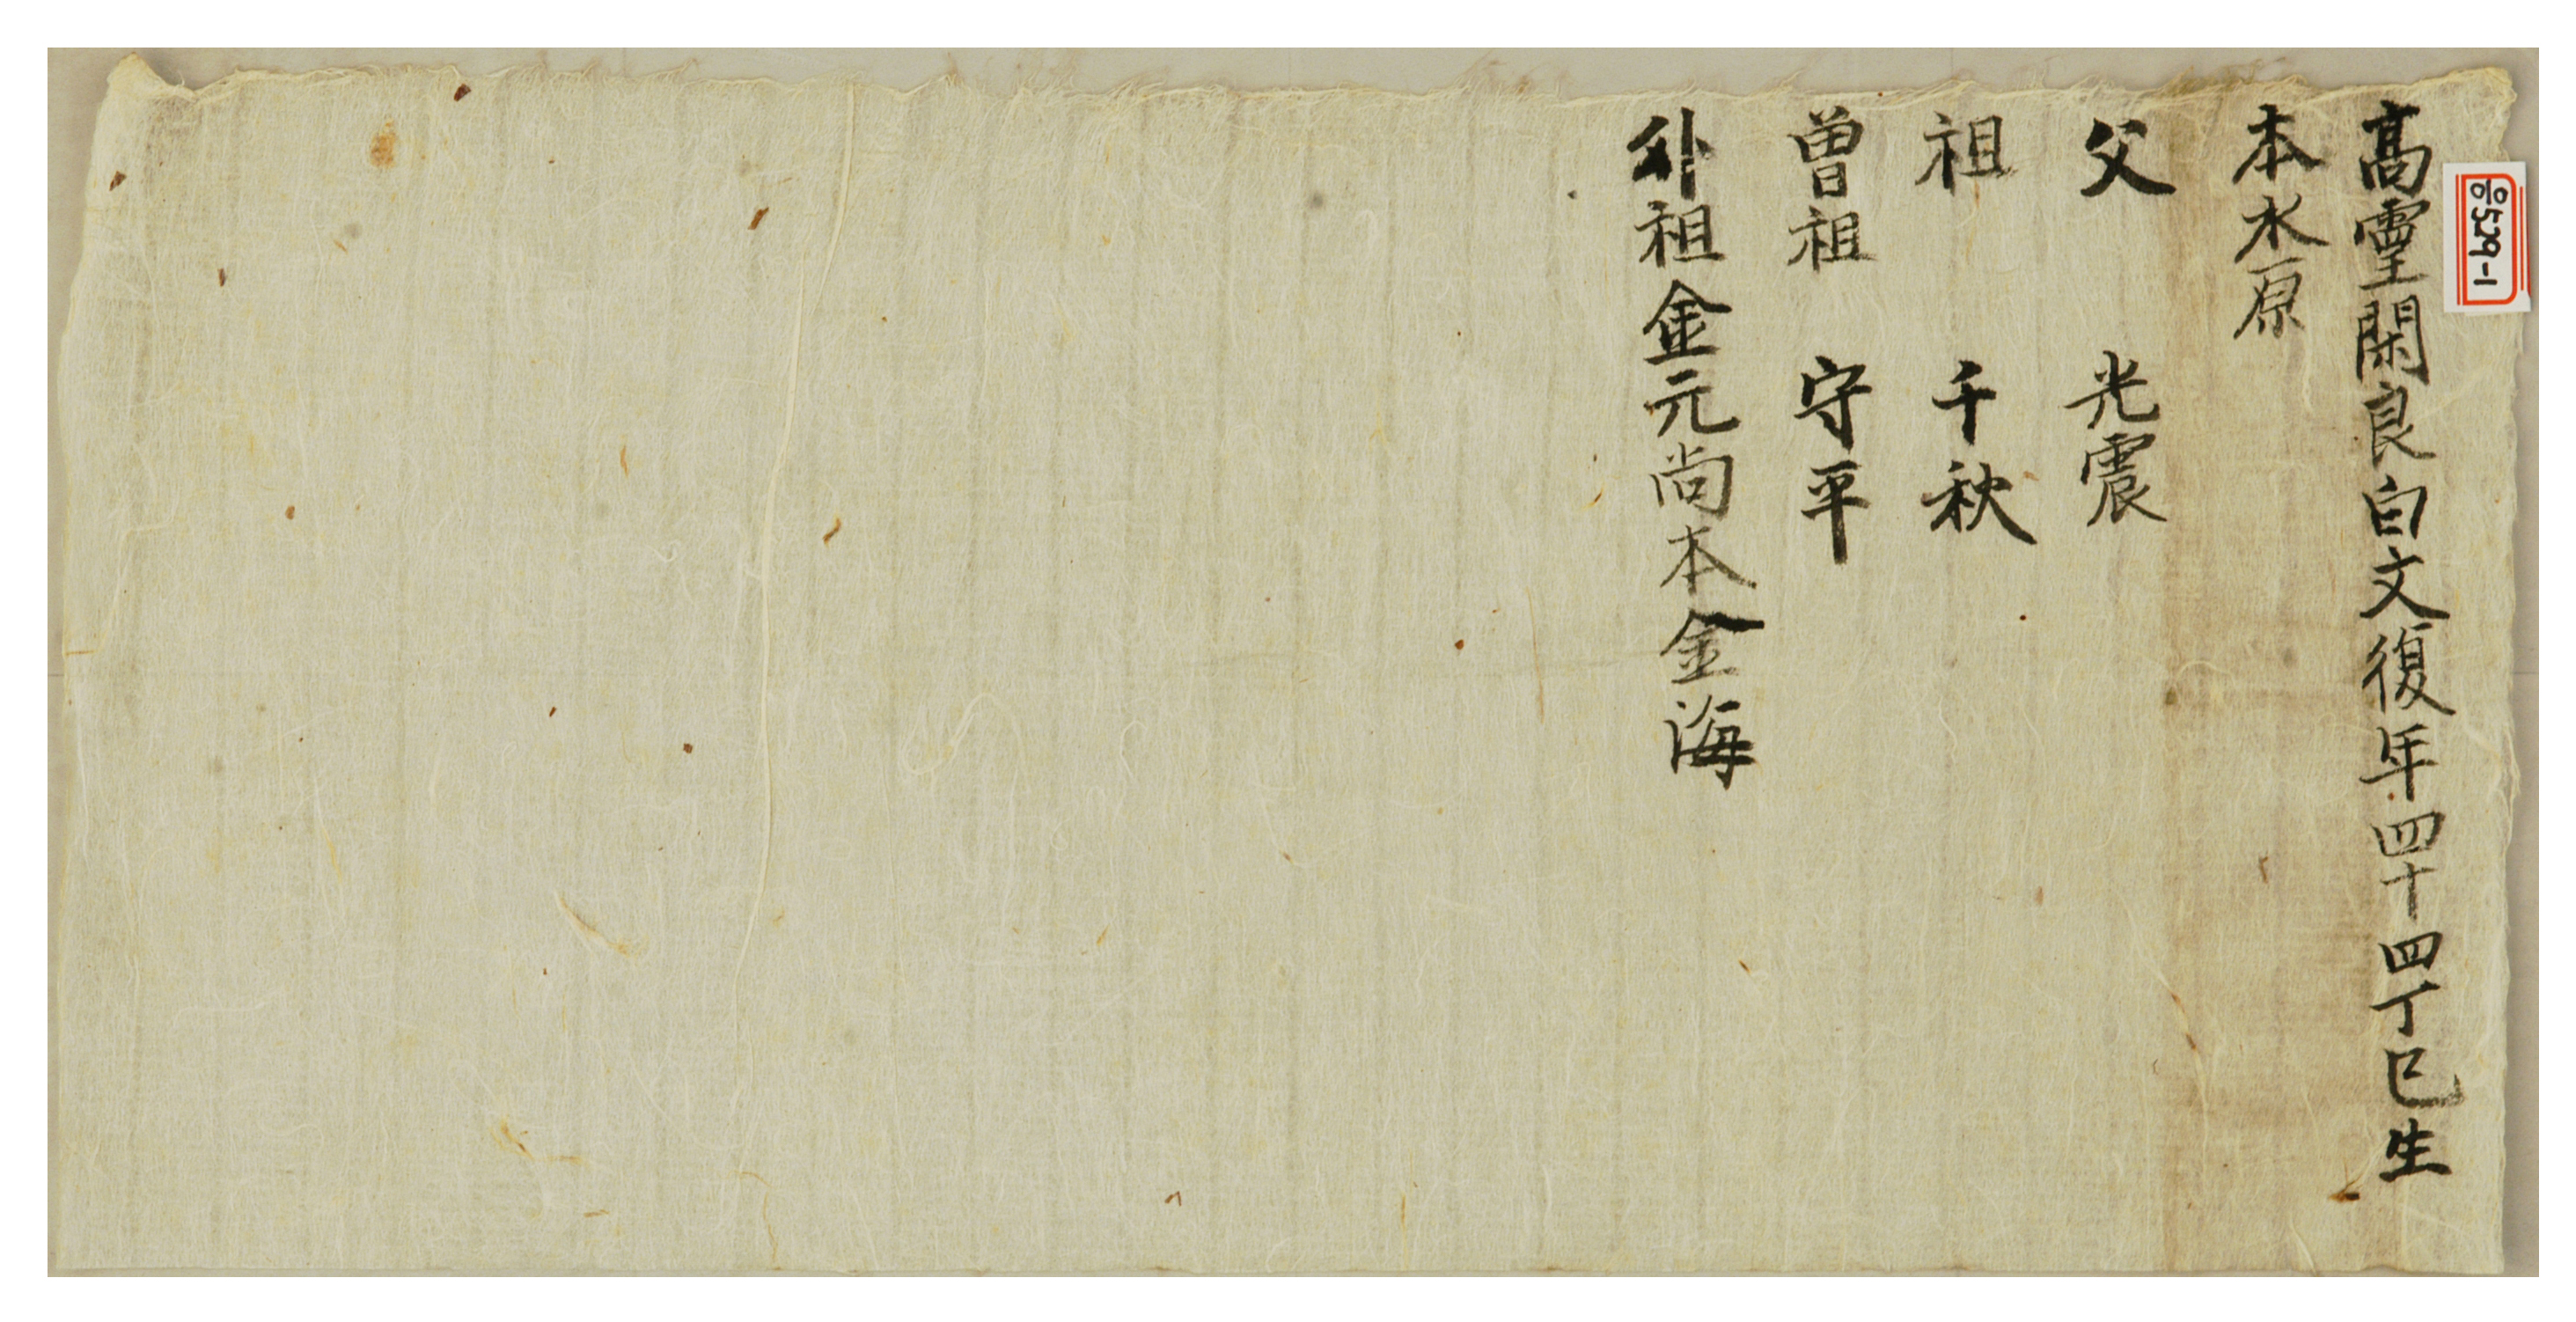 高霊閑良白文復年四十四丁巳生
本水原
父 光震
祖 千秋
曽祖 守平
外祖金元尚本金海
응529-1